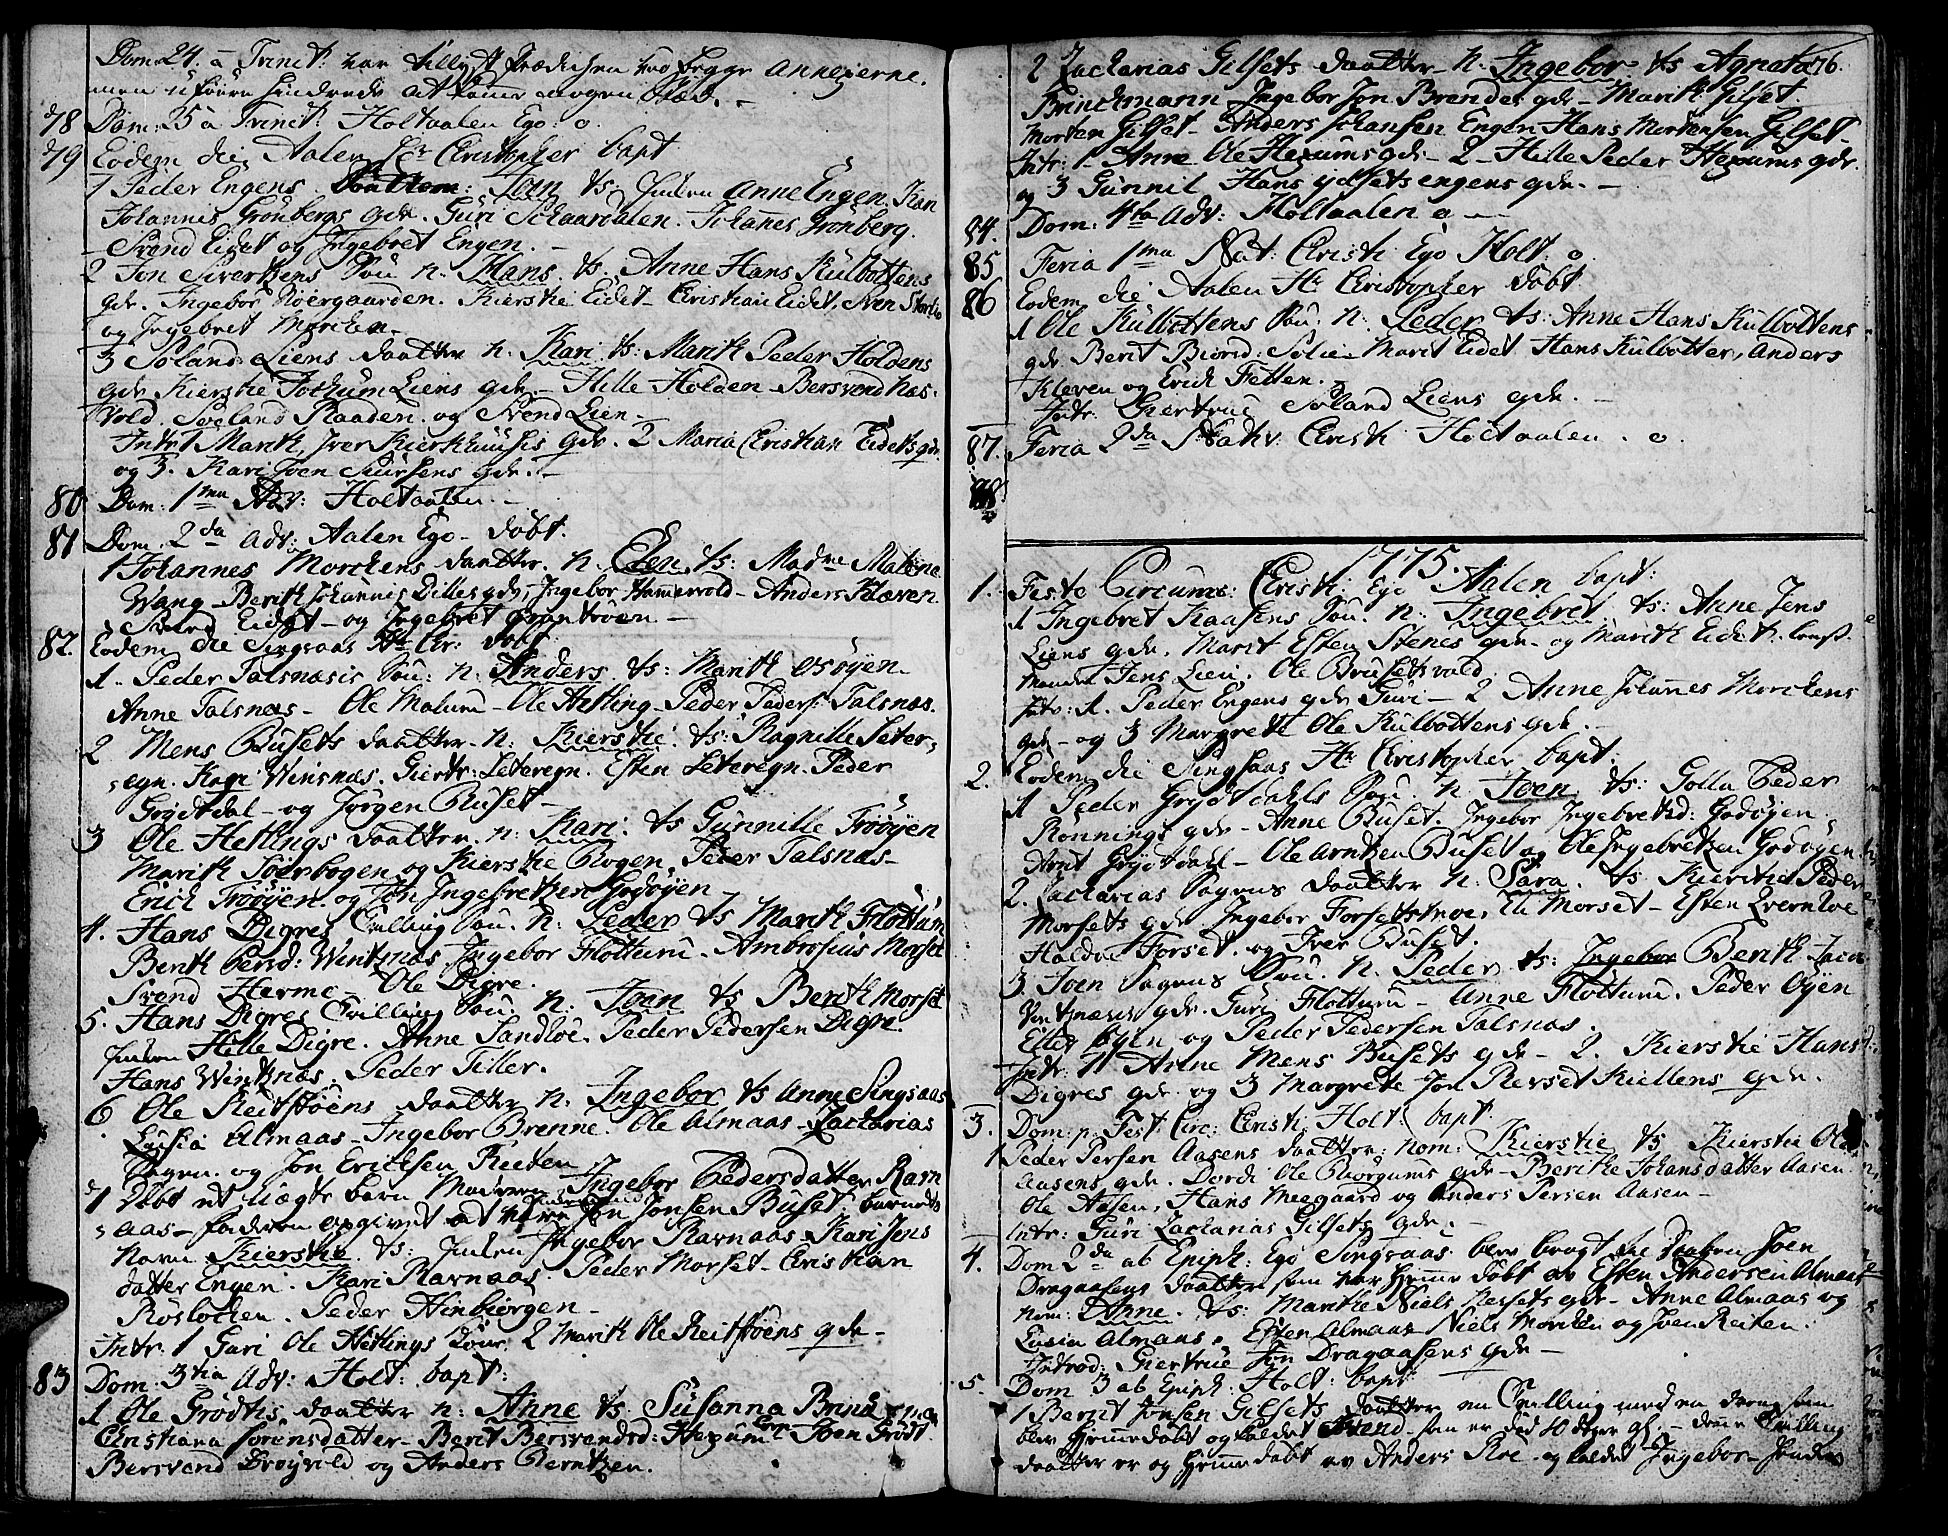 Dom: 24. a Trinit: var tillyst Prædiken ved begge Annexerne.
men uføre hindrede at komme nogen Sted. -
78 Dom: 25 a Trinit: Holtaalen Ego. o.
79 Eodem die Aalen Hr Christopher bapt
1 Peder Engens Joen ts: Anne Engen. Kari
Johannis Grønbergs gde. Guri Schaardalen. Johanes Grønberg.
Svend Eidet og Ingebret Engen. -
2 Jon Sivertsens Søn n. Hans. ts. Anne Hans Kulbottens
gde. Ingebor Kiergaarden. Kierstie Eidet - Christian Eidet,
og Ingebret Morchen.
3 Poland Liens Daatter n. Kari. ts: Marith Peder Holdens
gde Kierstie Jochum Liens gde. - Hille Holden - Bersvend Næs-
vold. Roland Raaden. og Svend Lien. -
Intr 1 Marith, Iver gde. 2 Maria Christian Eidets gde.
og 3. Kari Joen gde. -
80 Dom: 1ma Adv: Holtaalen. -
81 Dom. 2da Adv: Aalen Ego - døbt.
1 Johannes Morchens Daatter. n. Elen. ts: Madme Malene
Wang - Berith Johannis Dilles gde, Ingebor Hammervold - Anders Kleven
Svend Eidet - og Ingebret Grøntrøen. -
82. Eodem die Singsaas Hr Chr: døbt
1. Peder Talsnæsis Søn: n: Anders. ts: Marith Osøyen.
Anne Talsnæs - Ole Malum - Ole Hetling - Peder Peders: Talsnæs.
2 Mens Busets Daatter. n: Kierstie. ts: Ragnille Leter-
egn. Kari Winsnæs. Giertr: Leteregn. Esten Leteregn. Peder
Grøtdal - og Jørgen Buset -
3 Ole Hetlings Daatter. n: Kari. ts Gunnille Frøøyen
Marith Sørbogen og Kierstie Bogen. Peder Talsnæs -
Erich Frøøyen. og Jon Ingebretsen Godøyen -
4. Hans Digres Tvilling Søn. n: Peder ts Marith Flottum
Berith Winsnæs, Ingebor Flottum. Ambrosius Morset
Svend Herme - Ole Digre.
5. Hans Digres Tvilling Søn. n: Joen ts Berith Morset
Hille Digre. Anne Sandloe. Peder Pedersen Digre.
Hans Winsnæs. Peder Tiller.
6. Ole Reitstøens Daatter n. Ingebor ts Anne Singsaas
Lusia Almaas - Ingebor Brenne. Ole Almaas - Zacharias
Bogen. og Jon Ericksen Reiten
1 Døbt et uægte barn Moderen - Ingebor Pedersdatter Ram
aas - faderen opgivet at være Jon Jonsen Buset, barnets
Navn Kierstie. ts: Ingebor Ramaas - Kari Jens
datter Engen. Kari Ramaas. Peder Morset - Christian
Røslochen. Peder Hinbiørgen -
Intr. 1 Guri Ole Hetlings 2 Marith Ole Reitstøens gde -
83 Dom: 3tia Adv: Holt: bapt:
1 Ole Grødtis Daatter n: Anne ts Susanna
Christiana Sørensdatter - Berit Bersvendsd: Hexum Joen Grødt.
Bersvend Drøyvold og Anders Berntsen.
2 Zacharias Gilsets Daatter n. Ingebor ts Agneta 76.
Brinchmann. Ingebor Jon Brendes gde - Marith Gilset.
Morten Gilset - Anders Johansen Engen Hans Mortensen Gilset -
Intr: 1. Anne Ole Hexums gde - 2 - Hille Peder Hexums gde.
og 3 Gunnil Hans ydsets engens gde. -
84. Dom: 4ta Adv: Holtaalen o -
85 Feria 1ma Nat: Christi Ego Holt: o
86 Eodem die Aalen Hr Christopher døbt.
1 Ole Kulbottens Søn: n: Peder ts: Anne Hans Kulbottens
gde. Berit Marit Eidet. Hans Kulbotten, Anders
Kleven og Erich Fetten. -
Intr. Giertrue Poland Liens gde. -
87. Feria 2da Nativ: Christi Holtaalen. o.
88
1775.
1. Festo Circumc: Christi Ego Aalen bapt:
1 Ingebret Kaasens Søn. n: Ingebret ts: Anne Jens
Liens gde, Marit Esten Stenes gde - og Marith Eidet.
Jens Lien. Ole Brusetsvold.
Intr: 1. Peder Engens gde Guri - 2 Anne Johannes Morchens
gde - og 3 Margrete Ole Kulbottens gde. -
2. Eodem die Singsaas Hr Christopher bapt.
1 Peder Grytdahls Søn. n. Joen ts: Golla Peder
Rønnings gde - Anne Buset. Ingebor Ingebretsd: Godøyen,
Arnt Grytdahl - Ole Arntsen Buset og Ole Ingebretsen Godøyen
2. Zacharias Bogens Daatter n: Sara. ts Kierstie Peder
Morsets gde Ingebor Forsetstroe, Eli Morset - Esten Kvernloe
Haldo Forset. og Iver Buset.
3 Joen Bogens Søn. n. Peder. ts: Ingebor Berith
gde. Guri Flottum - Anne Flottum. Peder Øyen
Øyen. og Peder Pedersen Talsnæs.
Intr: 1 Anne Mens Busets gde - 2. Kierstie Hans
Digres gde. og 3 Margrete Jon Revset Kiellens gde.
3. Dom: p. Fest: Circ: Christi Holt bapt
1 Peder Persen Aasens Daatter: nom: Kierstie ts Kierstie Ole
Aasens gde. Dordi Ole gde - Berithe Johansdatter Aasen.
Ole Aasen, Hans Meegaard og Anders Persen Aasen -
Intr: Guri Zacharias Gilsets gde. -
4. Dom 2da ab Epiph: Ego Singsaas blev bragt til Daaben Joen
Dragaasens Daatter som var hjemme døbt av Esten Andersen Almaas
nom: Anne. ts: Marithe Niels gde - Anne Almaas og
Lusia Almaas. Esten Almaas Niels Morten og Joen Reiten.
Introd: Giertrue Jon Dragaasens gde -
5. Dom 3 ab Epiph: Holt: bapt
1 Bernt Jonsen Gilsets Daatter en Tvilling med en dreng som
blev hjemmedøbt og kaldet Svend som er død - denne Tvilling
daatter er og hjemmedøbt av Anders Roe - og kaldet Ingebor -